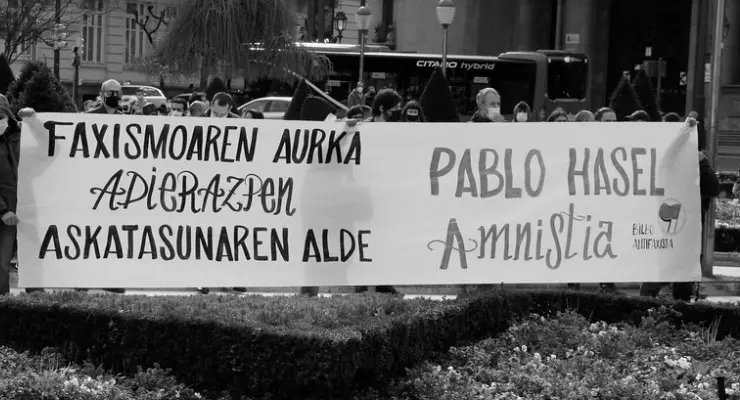 CITARO hybrid
hybrid
FAXISMOAREN AURKA
ADIERAZPEN
ASKATASUNAREN ALDE
PABLO HASEL
AMNISTIA
BILBO
ANTIFAXISTA